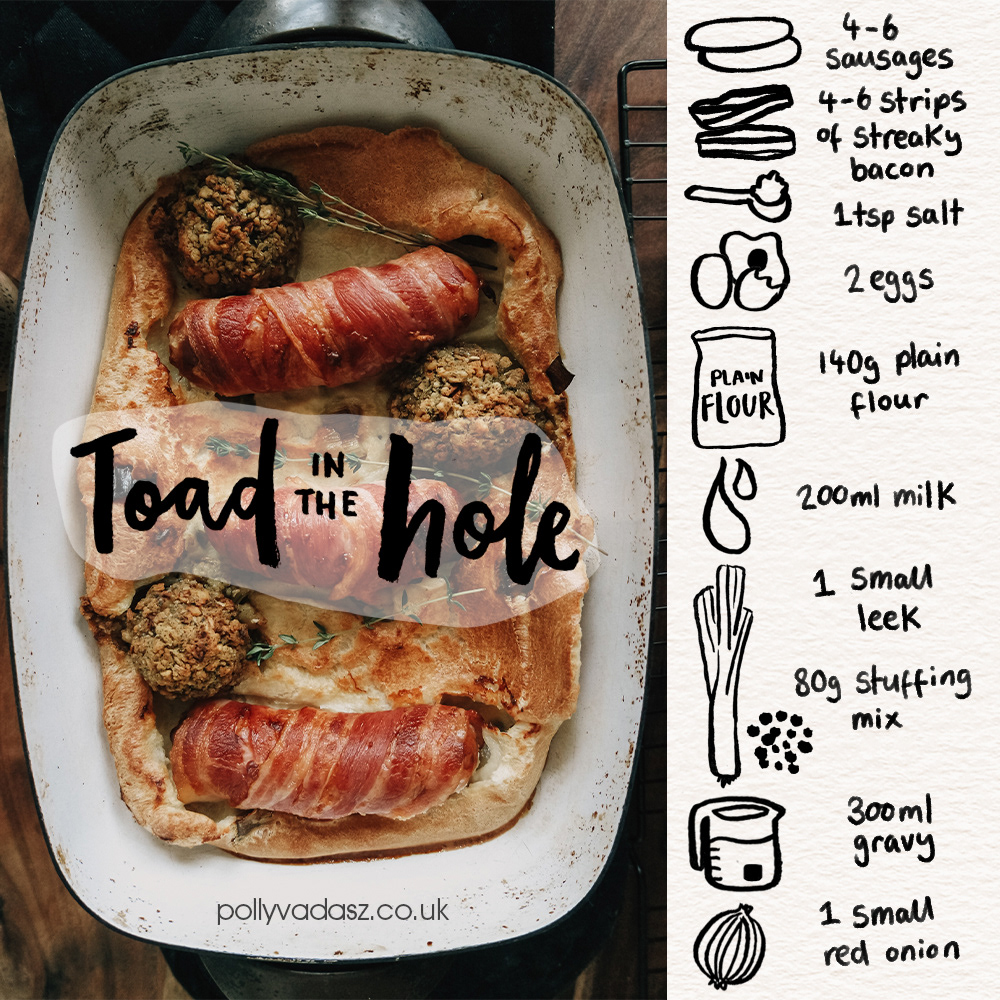 Toad IN THE hole
pollyvadasz.co.uk
4-6
sausages
4-6 strips
of streaky
bacon
1tsp salt
2 eggs
PLAIN
FLOUR
140g plain
flour
200ml milk
1 small
leek
80g stuffing
mix
300ml
gravy
1 small
red onion